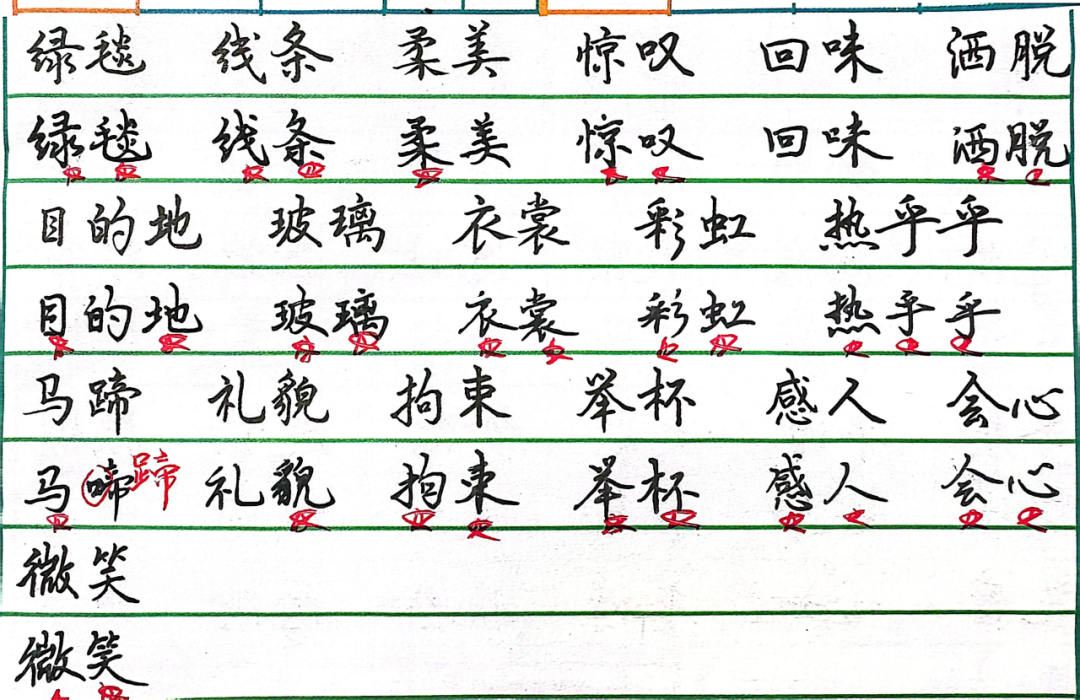 绿毯 线条 柔美 惊叹 回味 洒脱
绿毯 线条 柔美 惊叹 回味 洒脱
目的地 玻璃 衣裳 彩虹 热乎乎
目的地 玻璃 衣裳 彩虹 热乎乎
马蹄 礼貌 拘束 举杯 感人 会心
马啼蹄 礼貌 拘束 举杯 感人 会心
微笑
微笑